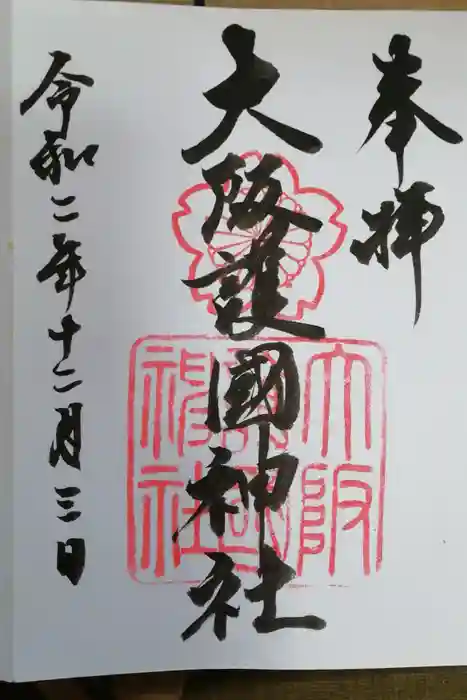 奉拝
大阪護國神社
大阪
護國
神社
令和二年十二月三日